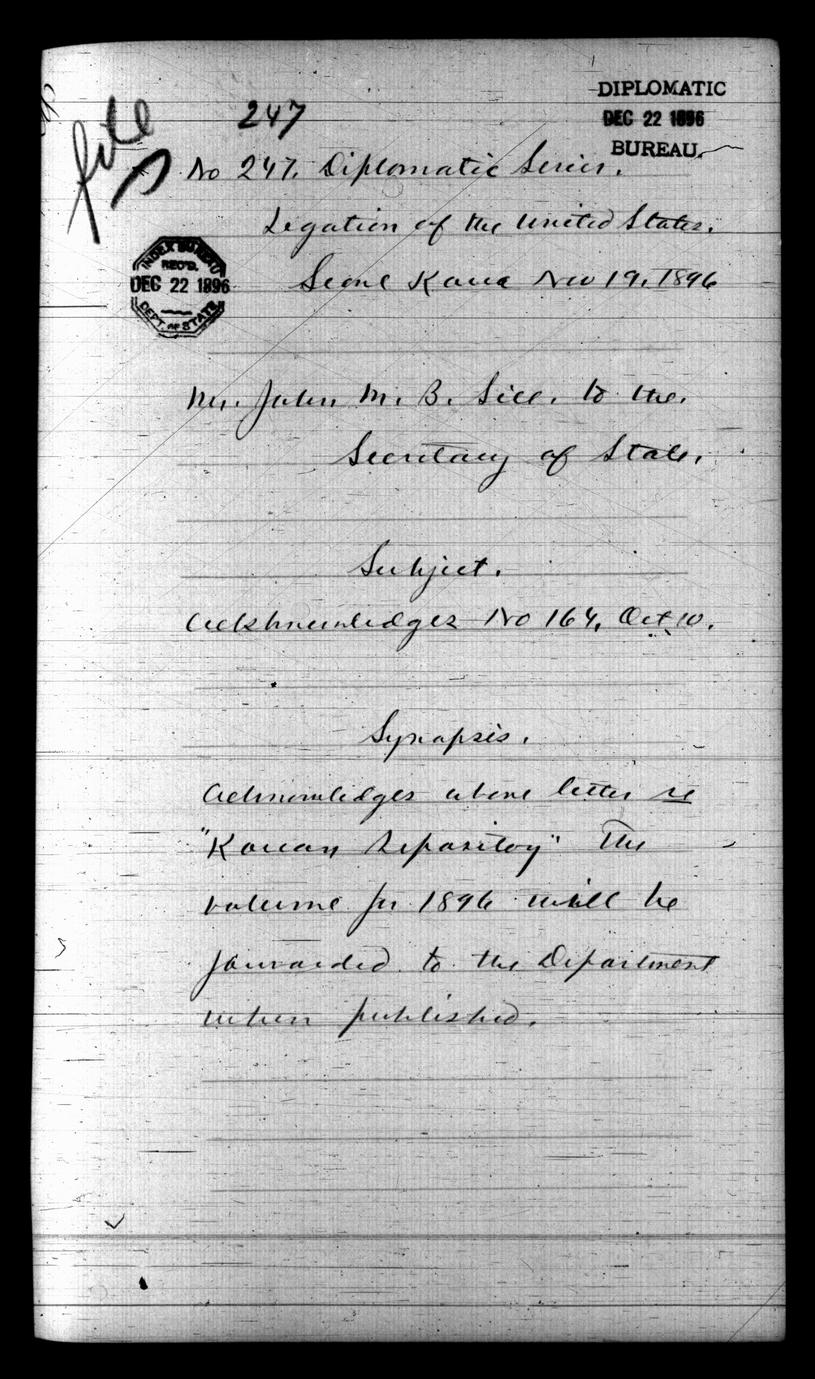 file
247
DIPLOMATIC
DEC 22 1896
BUREAU.
No 247. Diplomatic Series.
Legation of the United States.
INDEX BUREAU
REC'D.
DEC 22 1896
DEPT. OF STATE
Seoul Korea Nov 19, 1896
Mr. John M. B. Sill. to the.
Secretary of State.
Subject.
Acknowledges No 164, Oct 10.
Synopsis.
Acknowledges above letter re
"Korean Repository" The
volume for 1896 will be
forwarded to the Department
when published.